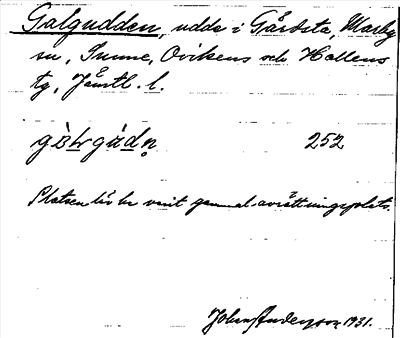 Galgudden, udde i Gårdsta, Marby
sn, Sunne, Ovikens och Hallens
tg, Jämtl. l.
252
Platsen lär ha varit gammal avrättningsplats.
John Anderson 1931.